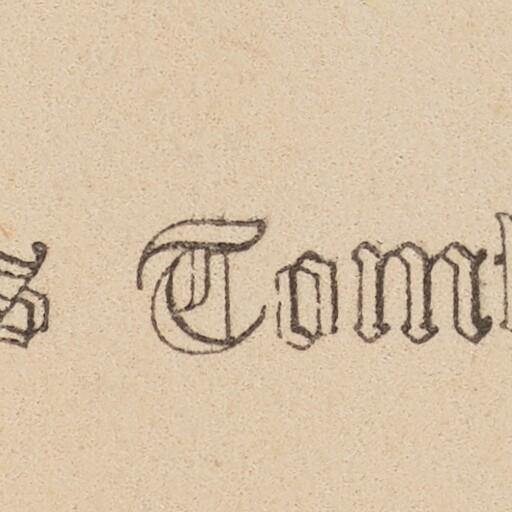 s Tomb